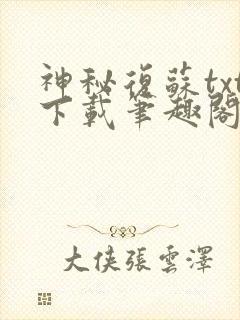 神秘復蘇txt
下載筆趣閣
大侠張雲澤